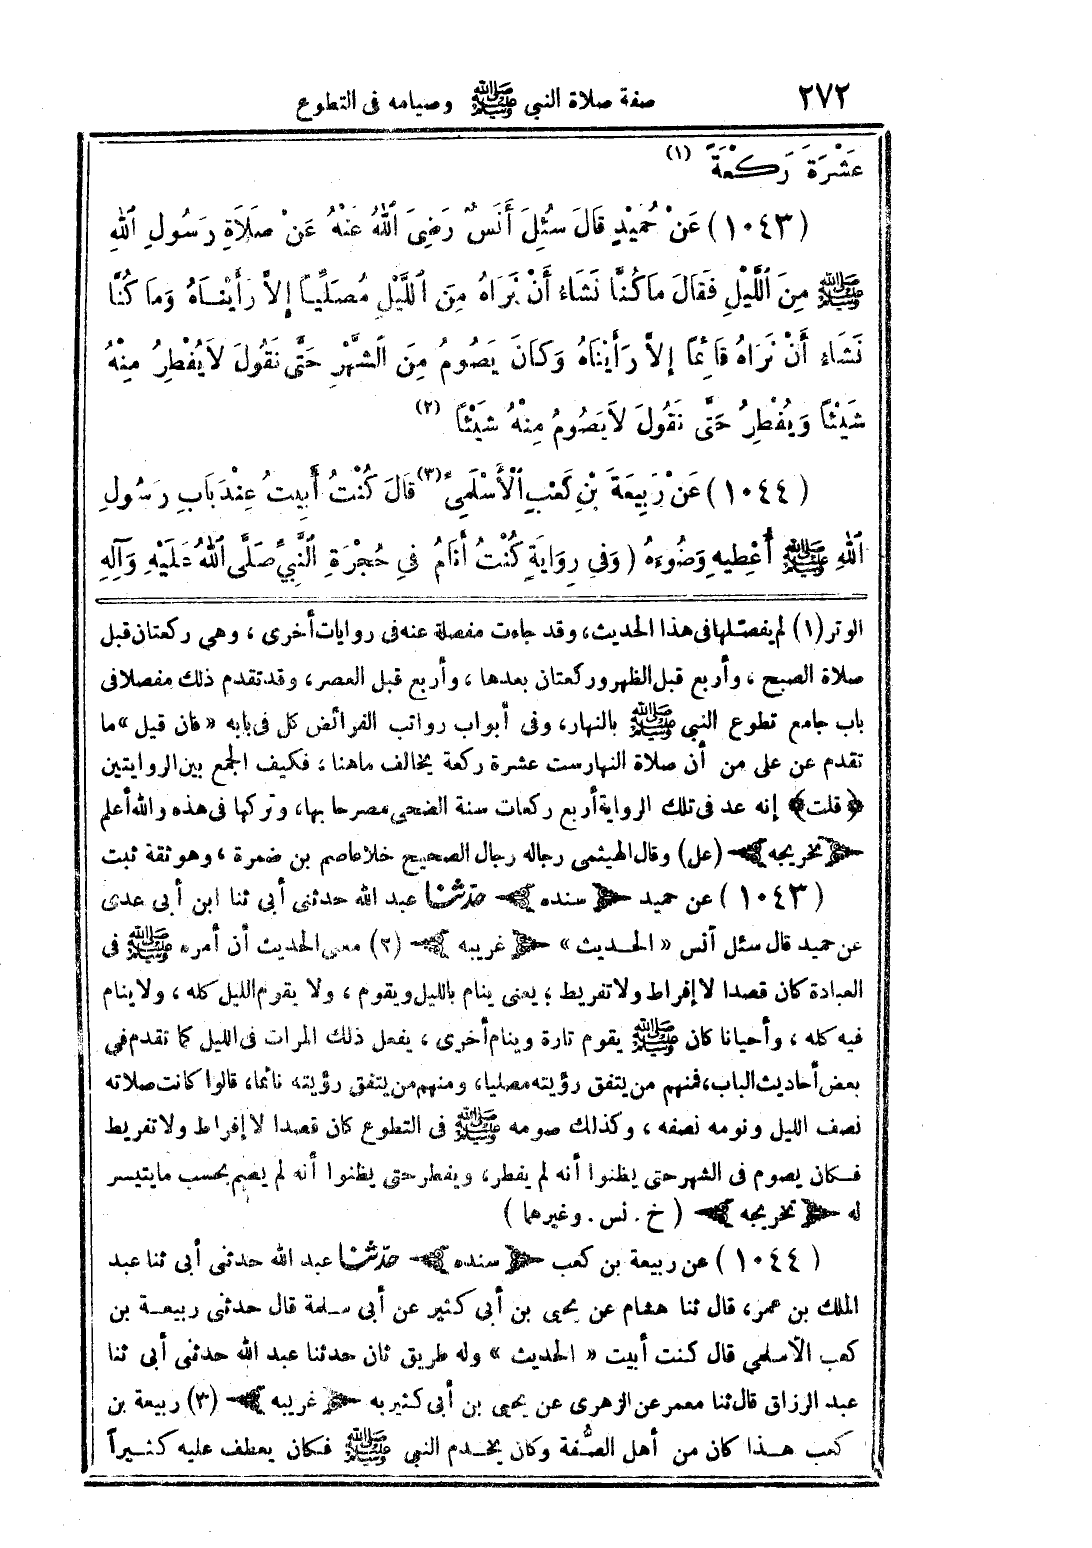 ٢٧٢ صفة صلاة النبي ﷺ وصيامه فى التطوع
عَشْرَةَ رَكْعَةً (١)
(١٠٤٣) عَنْ حُمَيْدٍ قَالَ سُئِلَ أَنَسٌ رَضِيَ ٱللهُ عَنْهُ عَنْ صَلَاةِ رَسُولِ ٱللهِ
ﷺ مِنَ ٱللَّيْلِ فَقَالَ مَا كُنَّا نَشَاءُ أَنْ نَرَاهُ مِنَ ٱللَّيْلِ مُصَلِّيًا إِلاَّ رَأَيْنَاهُ وَمَا كُنَّا
نَشَاءُ أَنْ نَرَاهُ قَائِمًا إِلاَّ رَأَيْنَاهُ وَكَانَ يَصُومُ مِنَ ٱلشَّهْرِ حَتَّى نَقُولَ لاَ يُفْطِرُ مِنْهُ
شَيْئًا وَيُفْطِرُ حَتَّى نَقُولَ لاَ يَصُومُ مِنْهُ شَيْئًا (٢)
(١٠٤٤) عَنْ رَبِيعَةَ بْنِ كَعْبٍ ٱلْأَسْلَمِيِّ (٣) قَالَ كُنْتُ أَبِيتُ عِنْدَ بَابِ رَسُولِ
ٱللهِ ﷺ أُعْطِيهِ وَضُوءَهُ (وَفِي رِوَايَةٍ كُنْتُ أَنَامُ فِي حُجْرَةِ ٱلنَّبِيِّ صَلَّى ٱللهُ عَلَيْهِ وَآلِهِ
الوتر (١) لم يفصلها فى هذا الحديث، وقد جاءت مفصلة عنه فى روايات أخرى ، وهي ركعتان قبل
صلاة الصبح ، وأربع قبل الظهر وركعتان بعدها ، وأربع قبل العصر، وقد تقدم ذلك مفصلا فى
باب جامع تطوع النبي ﷺ بالنهار، وفى أبواب رواتب الفرائض كل فى بابه «فان قيل» ما
تقدم عن على من أن صلاة النهار ست عشرة ركعة يخالف ما هنا ، فكيف الجمع بين الروايتين
﴿قلت﴾ إنه عد فى تلك الرواية أربع ركعات سنة الضحى مصرحا بها، وتركها فى هذه والله أعلم
﴿تخريجه﴾ (عل) وقال الهيثمى رجاله رجال الصحيح خلا عاصم بن ضمرة ، وهو ثقة ثبت
(١٠٤٣) عن حميد ﴿سنده﴾ حدّثنا عبد الله حدثنى أبى ثنا ابن أبى عدى
عن حميد قال سئل أنس «الحديث» ﴿غريبه﴾ (٢) معنى الحديث أن أمره ﷺ فى
العبادة كان قصدا لا إفراط ولا تفريط ؛ يعنى ينام بالليل ويقوم ، ولا يقوم الليل كله ، ولا ينام
فيه كله ، وأحيانا كان ﷺ يقوم تارة وينام أخرى ، يفعل ذلك المرات فى الليل كما تقدم في
بعض أحاديث الباب، فمنهم من يتفق رؤيته مصليا، ومنهم من يتفق رؤيته نائما، قالوا كانت صلاته
نصف الليل ونومه نصفه ، وكذلك صومه ﷺ فى التطوع كان قصدا لا إفراط ولا تفريط
فكان يصوم فى الشهر حتى يظنوا أنه لم يفطر، ويفطر حتى يظنوا أنه لم يصم بحسب ما يتيسر
له ﴿تخريجه﴾ ( خ . نس . وغيرهما )
(١٠٤٤) عن ربيعة بن كعب ﴿سنده﴾ حدّثنا عبد الله حدثنى أبى ثنا عبد
الملك بن عمر، قال ثنا هشام عن يحيى بن أبى كثير عن أبى سلمة قال حدثنى ربيعة بن
كعب الأسلمي قال كنت أبيت «الحديث» وله طريق ثان حدثنا عبد الله حدثنى أبى ثنا
عبد الرزاق قال ثنا معمر عن الزهرى عن يحيى بن أبى كثير به ﴿غريبه﴾ (٣) ربيعة بن
كعب هذا كان من أهل الصُّفة وكان يخدم النبي ﷺ فكان يعطف عليه كثيراً